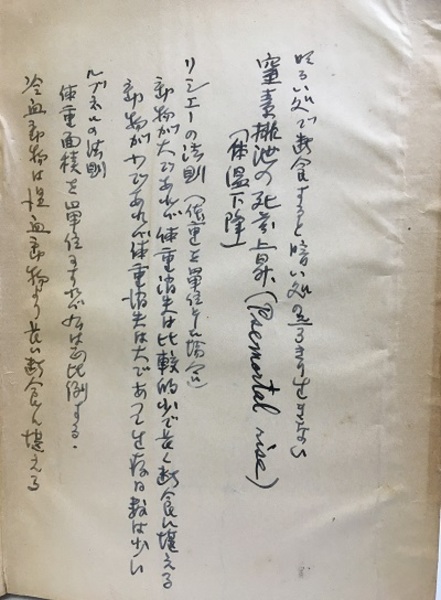 明るい処で断食すると暗い処の    より生きない
窒素排泄の死前上昇（Praemortal rise）
〔体温下降〕
リシエーの法則（体重を単位とした場合）
動物が大であれバ体重消失は比較的少で長く断食に堪える
動物が少であれバ体重消失は大であって生存日数は少い
ルブネルの法則
体重面積を単位とすれバ      比例する．
冷血動物は温血動物より長い断食に堪える